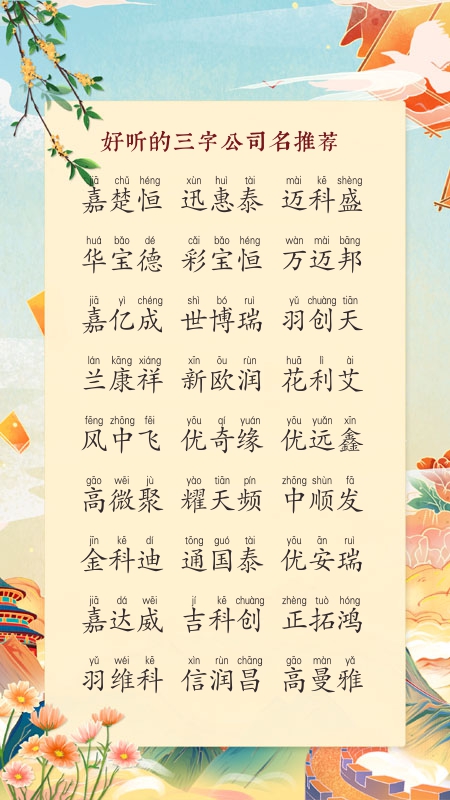 好听的三字公司名推荐
jiā chǔ héng xùn huì tài mài kē shèng
嘉楚恒 迅惠泰 迈科盛
huá bǎo dé cǎi bǎo héng wàn mài bāng
华宝德 彩宝恒 万迈邦
jiā yì chéng shì bó ruì yǔ chuàng tiān
嘉亿成 世博瑞 羽创天
lán kāng xiáng xīn ōu rùn huā lì ài
兰康祥 新欧润 花利艾
fēng zhōng fēi yōu qí yuán yōu yuǎn xīn
风中飞 优奇缘 优远鑫
gāo wēi jù yào tiān pín zhōng shùn fā
高微聚 耀天频 中顺发
jīn kē dí tōng guó tài yōu ān ruì
金科迪 通国泰 优安瑞
jiā dá wēi jí kē chuàng zhèng tuò hóng
嘉达威 吉科创 正拓鸿
yǔ wéi kē xìn rùn chāng gāo màn yǎ
羽维科 信润昌 高曼雅